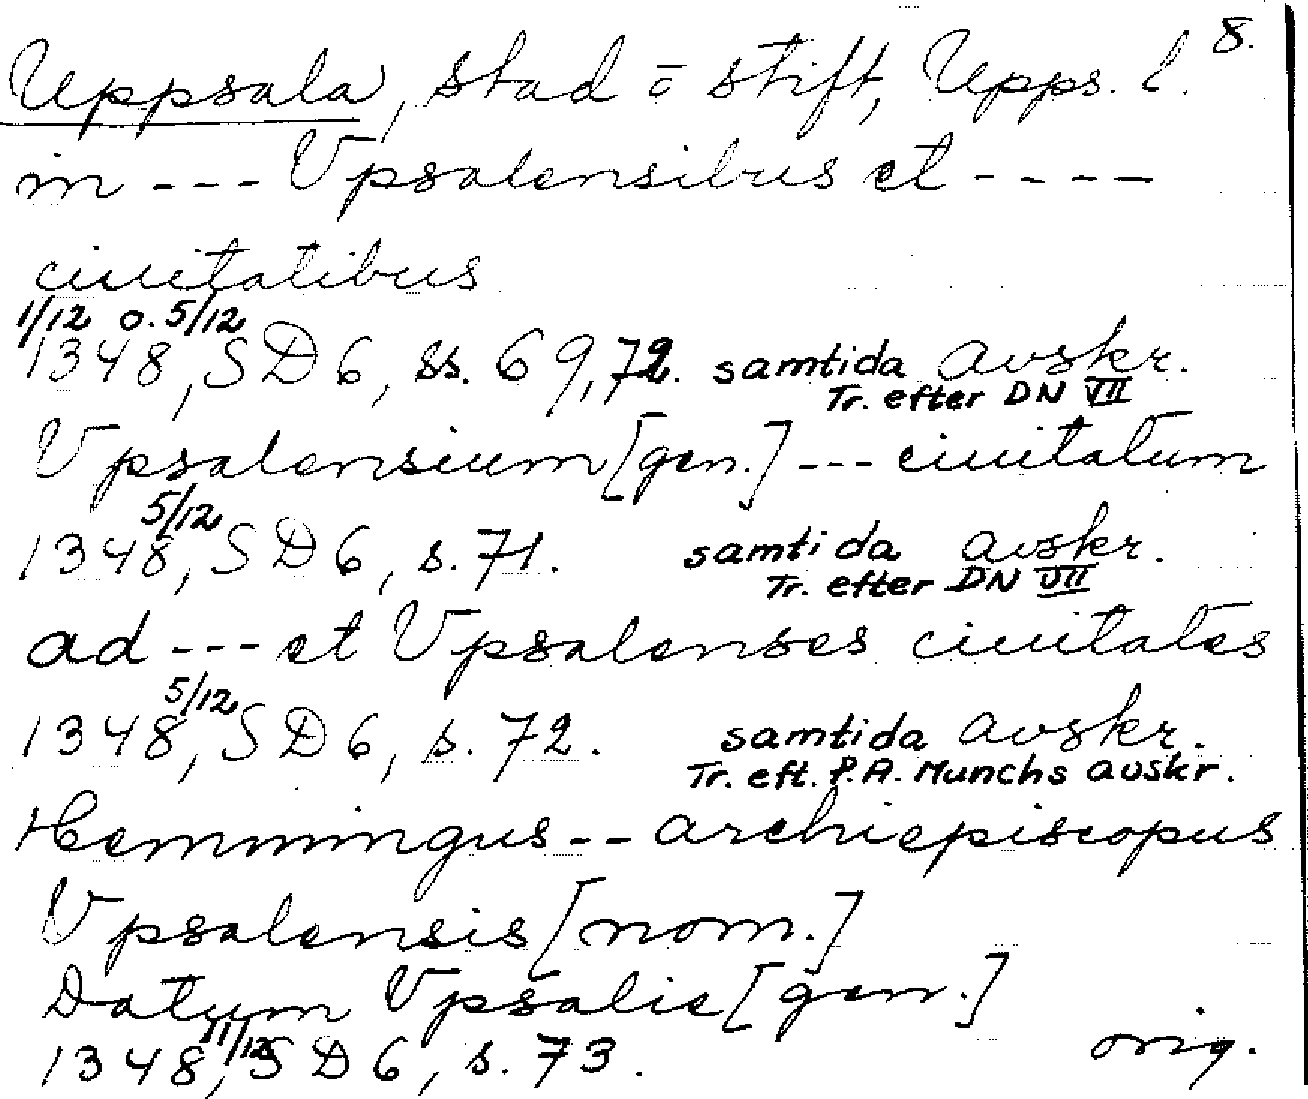 8.
Uppsala, stad o stift, Upps. l.
in --- Vpsalensibus et ----
ciuitatibus
1/12 o. 5/12
1348, SD 6, ss. 69, 72. samtida avskr.
Tr. efter DN VII
Vpsalensium [gen.] --- ciuitatum
5/12
1348, SD 6, s. 71. samtida avskr.
Tr. efter DN VII
ad --- et Vpsalenses ciuitates
5/12
1348, SD 6, s. 72. samtida avskr.
Tr. eft. P.A. Munchs avskr.
Hemmingus -- archiepiscopus
Vpsalensis [nom.]
Datum Vpsalie [gen.]
11/12
1348, SD 6, s. 73. orig.